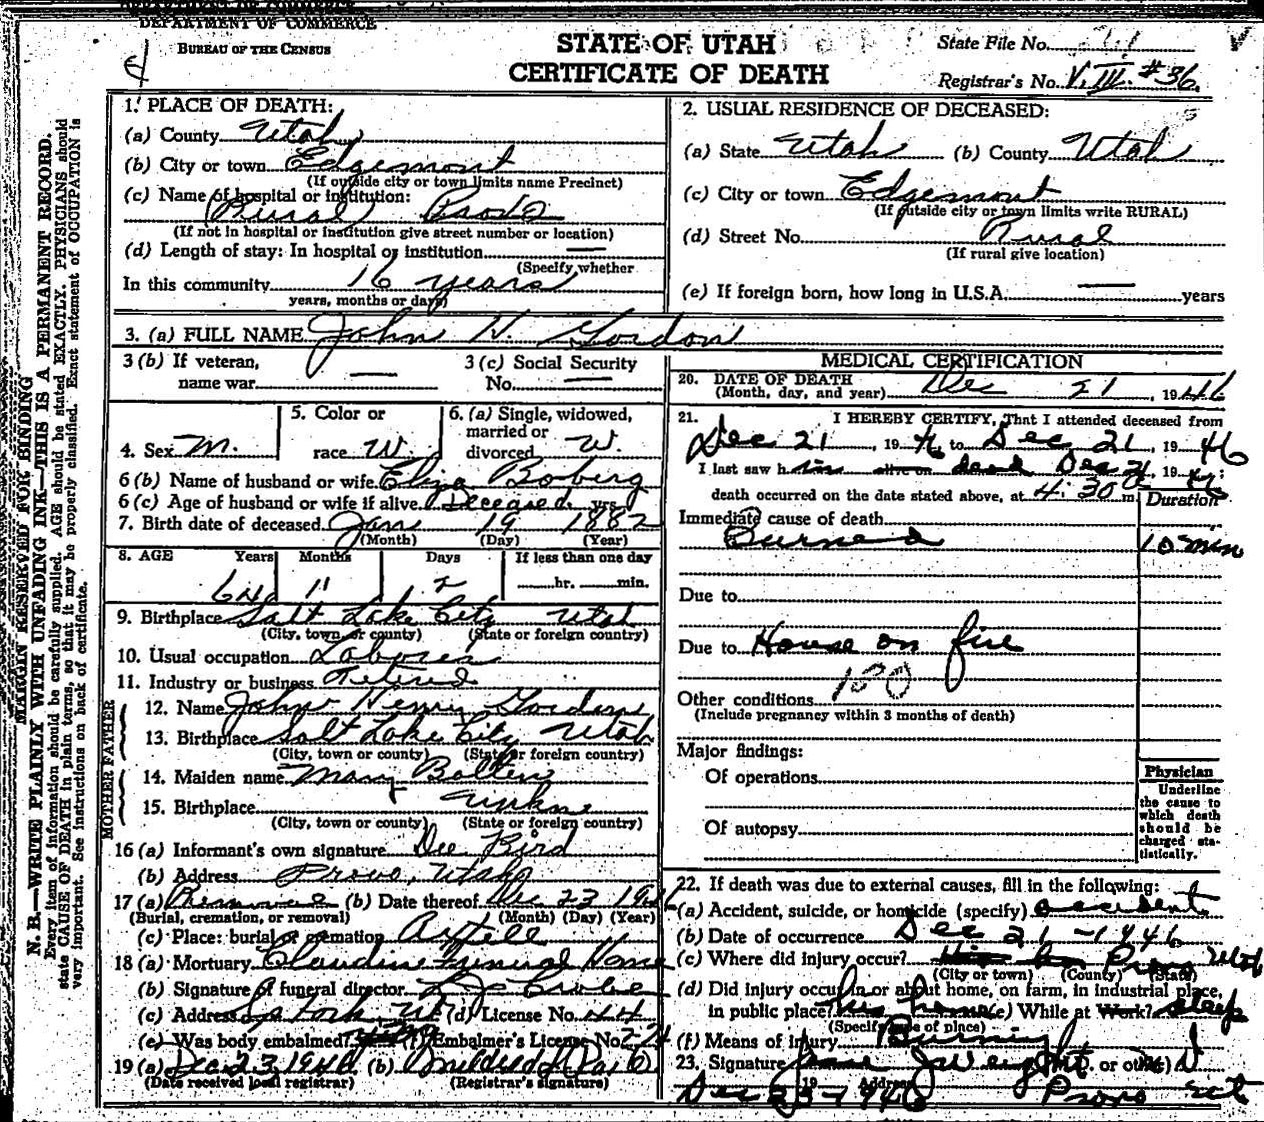 DEPARTMENT OF COMMERCE
BUREAU OF THE CENSUS
STATE OF UTAH
CERTIFICATE OF DEATH
State File No.
Registrar's No. V. #36.
MARGIN RESERVED FOR BINDING
N. B.—WRITE PLAINLY WITH UNFADING INK—THIS IS A PERMANENT RECORD.
Every item of information should be carefully supplied. AGE should be stated EXACTLY. PHYSICIANS should
state CAUSE OF DEATH in plain terms, so that it may be properly classified. Exact statement of OCCUPATION is
very important. See instructions on back of certificate.
1. PLACE OF DEATH:
(a) County Utah
(b) City or town Edgemont
(If outside city or town limits name Precinct)
(c) Name of hospital or institution:
(Rural) Provo
(If not in hospital or institution give street number or location)
(d) Length of stay: In hospital or institution —
(Specify whether
In this community 16 years
years, months or days)
2. USUAL RESIDENCE OF DECEASED:
(a) State Utah (b) County Utah
(c) City or town Edgemont
(If outside city or town limits write RURAL)
(d) Street No. Rural
(If rural give location)
(e) If foreign born, how long in U.S.A. — years
3. (a) FULL NAME John H. Gordon
3 (b) If veteran, name war —
3 (c) Social Security No. —
4. Sex M.
5. Color or race W
6. (a) Single, widowed, married or divorced W.
6 (b) Name of husband or wife Eliza Boberg
6 (c) Age of husband or wife if alive Deceased yrs.
7. Birth date of deceased Jan 19 1882
(Month) (Day) (Year)
8. AGE Years Months Days If less than one day
64 11 2 hr. min.
9. Birthplace Salt Lake City Utah
(City, town or county) (State or foreign country)
10. Usual occupation Laborer
11. Industry or business Retired
FATHER
12. Name John Henry Gordon
13. Birthplace Salt Lake City Utah
(City, town or county) (State or foreign country)
MOTHER
14. Maiden name Mary
15. Birthplace
(City, town or county) (State or foreign country)
16 (a) Informant's own signature Dee Bird
(b) Address Provo, Utah
17 (a) Removal (b) Date thereof Dec 23 1946
(Burial, cremation, or removal) (Month) (Day) (Year)
(c) Place: burial or cremation Axtell
18 (a) Mortuary Claudin Funeral Home
(b) Signature of funeral director
(c) Address Sp Fork, Ut (d) License No. 44
(e) Was body embalmed? (f) Embalmer's License No.
19 (a) Dec 23, 1946 (b) Mildred
(Date received local registrar) (Registrar's signature)
MEDICAL CERTIFICATION
20. DATE OF DEATH
(Month, day, and year) Dec 21, 1946
21. I HEREBY CERTIFY, That I attended deceased from
Dec 21, 1946 to Dec 21 1946
I last saw him alive on dead Dec 21 1946
death occurred on the date stated above, at 4:30 m.
Duration
Immediate cause of death
Burned 10 min
Due to
Due to House on fire
Other conditions 180
(Include pregnancy within 3 months of death)
Major findings:
Of operations
Of autopsy
Physician
Underline
the cause to
which death
should be
charged sta-
tistically.
22. If death was due to external causes, fill in the following:
(a) Accident, suicide, or homicide (specify) accident
(b) Date of occurrence Dec 21 - 1946
(c) Where did injury occur? Provo Utah
(City or town) (County) (State)
(d) Did injury occur in or about home, on farm, in industrial place,
in public place? his home (e) While at Work? sleep
(Specify type of place)
(f) Means of injury Burning
23. Signature (M. D. or other) M D
Dec 23-1946 Address Provo Ut